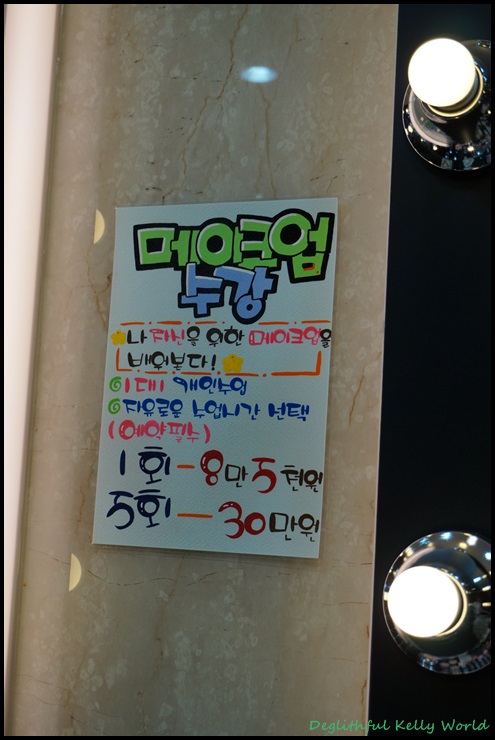 메이크업
수강
나 자신을 위한 메이크업을
배워본다!
1대1 개인수업
자유로운 수업시간 선택
(예약필수)
1회 - 8만 5천원
5회 - 30만원
Deglithful Kelly World